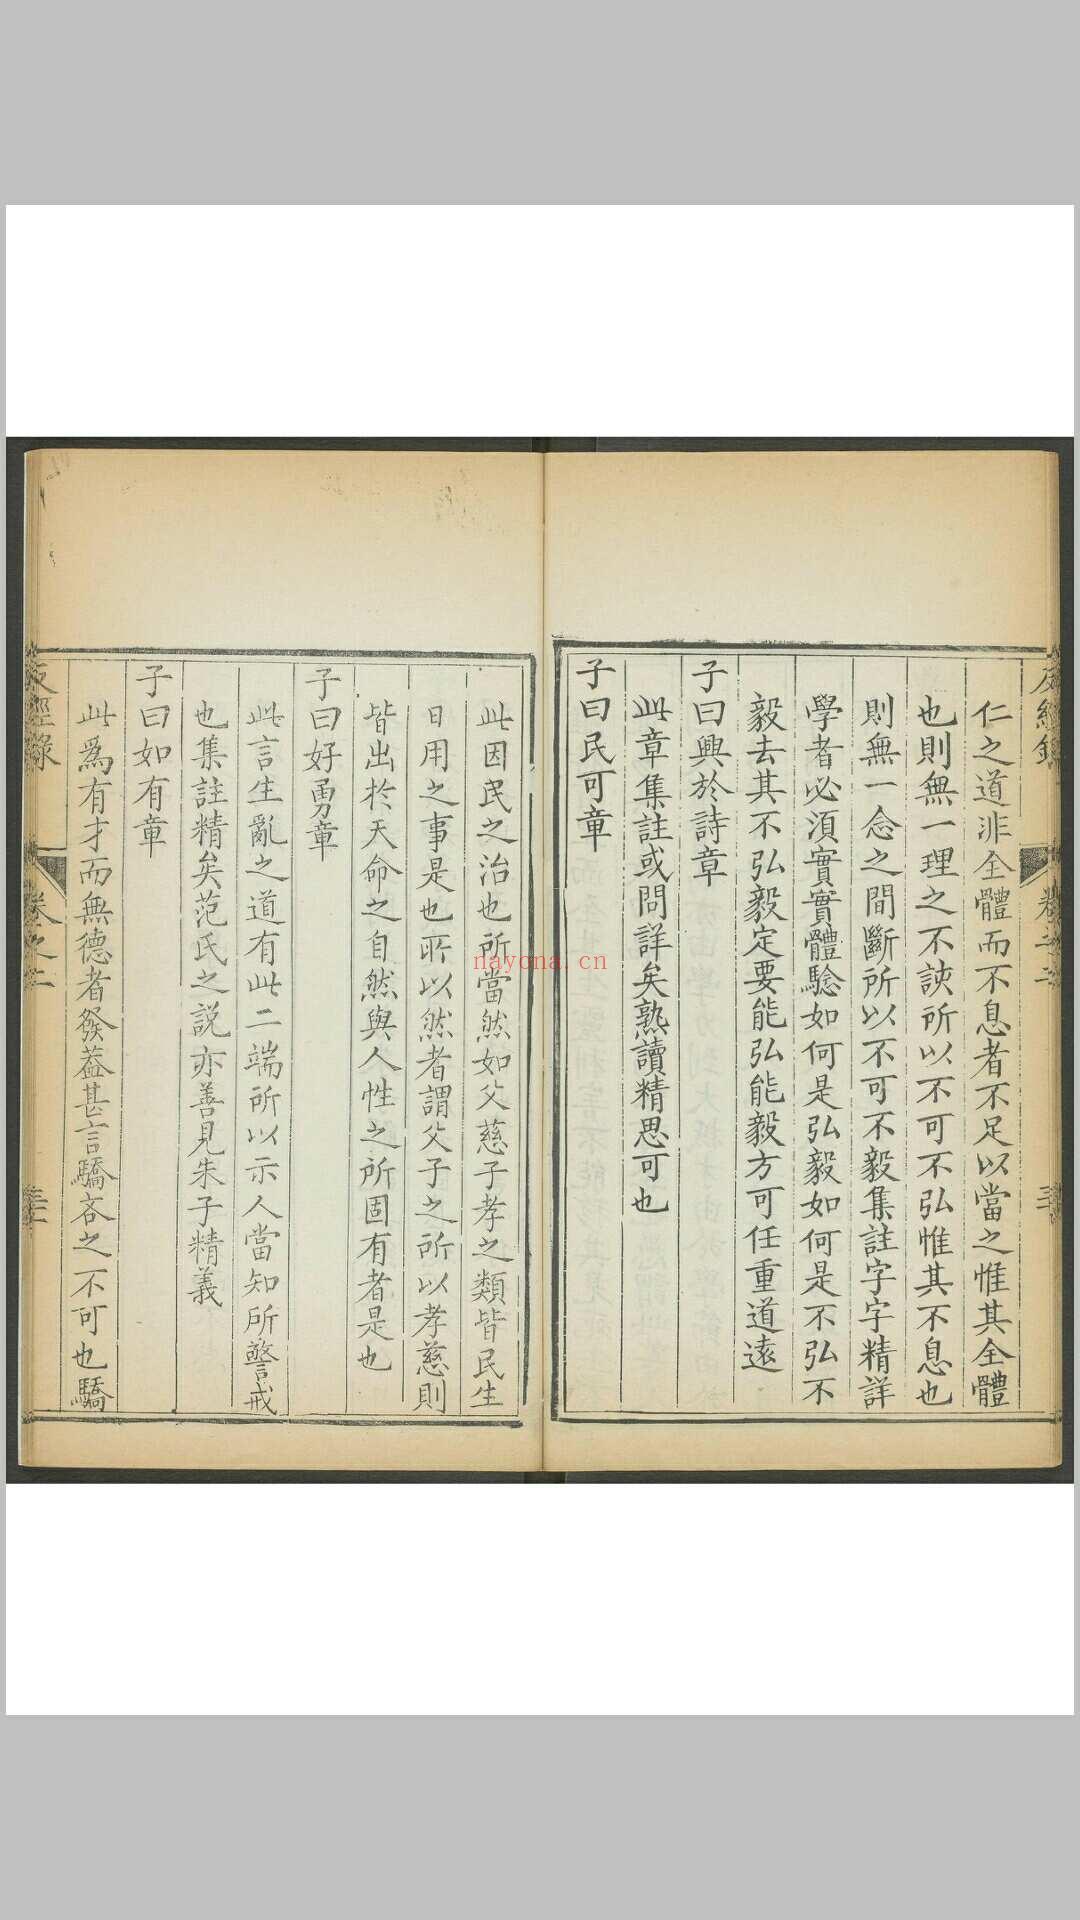 仁之道非全體而不息者不足以當之惟其全體
也則無一理之不該所以不可不弘惟其不息也
則無一念之間斷所以不可不毅集註字字精詳
學者必須實實體驗如何是弘毅如何是不弘不
毅去其不弘毅定要能弘能毅方可任重道遠
子曰興於詩章
此章集註或問詳矣熟讀精思可也
子曰民可章
此因民之治也所當然如父慈子孝之類皆民生
日用之事是也所以然者謂父子之所以孝慈則
皆出於天命之自然與人性之所固有者是也
子曰好勇章
此言生亂之道有此二端所以示人當知所警戒
也集註精矣范氏之説亦善見朱子精義
子曰如有章
此爲有才而無德者發葢甚言驕吝之不可也驕
反經錄
卷之二
nayona.cn